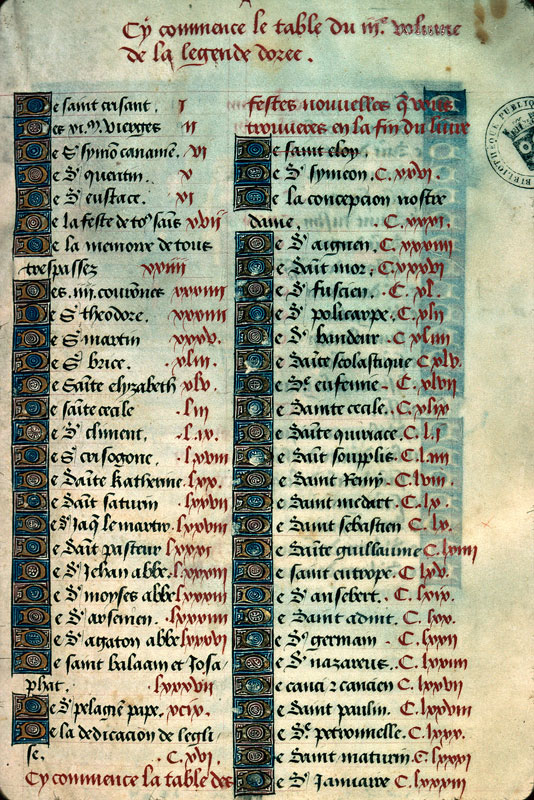 Cy commence le table du iiie volume
de la legende doree .
De saint crisant . i
Des xi. m. vierges ii
De S symon cananee. vi
De S quentin . v
De S eustace . vi
De la feste de tos sains xvii
De la memoire de tous
trespasses xxiiii
Des .iiii. couronés xxxiiii
De S theodore . xxxiiii
De S martin xxxv .
De S brice . xliii .
De Sainte elyzabeth xlv .
De sainte cecile . liii
De S climent . . lix .
De S crisogone . . lxviii
De Sainte Katherine . lxx .
De Saint saturin lxxvii
De St Jaq le martir . lxxviii
De Saint pasteur lxxxi
De St Jehan abbe . lxxxiii
De St moyses abbe lxxxiii
De St arsemen . lxxxiiii
De St agaton abbe lxxxvi
De saint balaam et Josa
phat . lxxxvii
De St pelagien pape . xcix .
De la dedicacion de legli
se . C . xvi .
Cy commence la table des
festes nouvelles q̃ vous
trouveres en la fin du livre
De saint eloy .
De St symeon C . xxvi .
De la concepcion nostre
dame . . C . xxxi .
De St aignen . C . xxxiiii
De Saint mor . C . xxxvi
De St fuscien . C . xl .
De St policarpe . C . xlii
De St bandeur . C . xliiii
De Sainte scolastique C xlv .
De Ste eufemie . C . xlvii
De Sainte cecile . C . xlix
De Sainte quiriace . C . l . i
De Saint soupplis . C . l . iiii
De Saint Remy . C . lviii .
De Saint medart . C . lx .
De Saint sebastien C . lx .
De Sainte guillaume C . lxiiii
De saint eutrope . C . lxv .
De St ansebert . C . lxix .
De Saint adiut . C . lxx .
De St germain . C . lxxii
De St nazareus . C . lxxiiii
De canci z cancien C . lxxvii
De Saint paulin . C . lxxviii
De Ste petronnelle . C . lxxx .
De Saint maturin . C . lxxxi
De St Januarre C . lxxxiii
BIBLIOTHEQUE PUBLIQUE